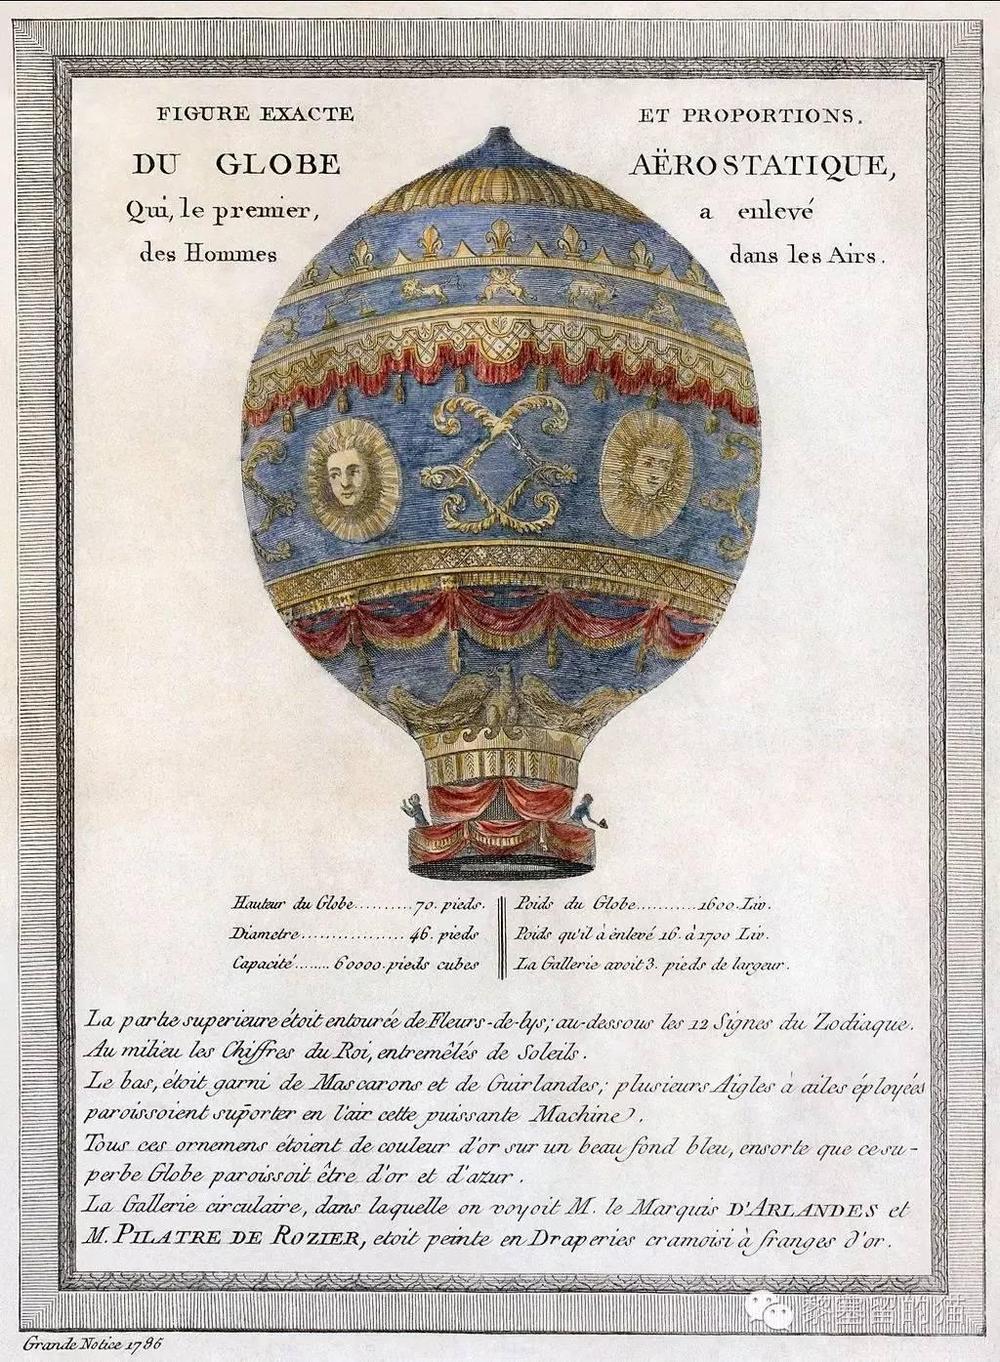 FIGURE EXACTE ET PROPORTIONS.
DU GLOBE AËROSTATIQUE,
Qui, le premier, a enlevé
des Hommes dans les Airs.
Hauteur du Globe..........70. pieds.
Diametre.................. 46. pieds
Capacité........ 60000. pieds cubes
Poids du Globe..........1600. Liv.
Poids qu'il à enlevé 16. à 1700 Liv.
La Gallerie avoit 3. pieds de largeur.
La partie superieure étoit entourée de Fleurs-de-lys; au-dessous les 12 Signes du Zodiaque.
Au milieu les Chiffres du Roi, entremêlés de Soleils.
Le bas, étoit garni de Mascarons et de Guirlandes; plusieurs Aigles à ailes éployées
paroissoient suporter en l'air cette puissante Machine.
Tous ces ornemens étoient de couleur d'or sur un beau fond bleu, ensorte que ce su-
perbe Globe paroissoit être d'or et d'azur.
La Gallerie circulaire, dans laquelle on voyoit M. le Marquis D'ARLANDES et
M. PILATRE DE ROZIER, etoit peinte en Draperies cramoisi à franges d'or.
Grande Notice 1786
黎塞留的猫